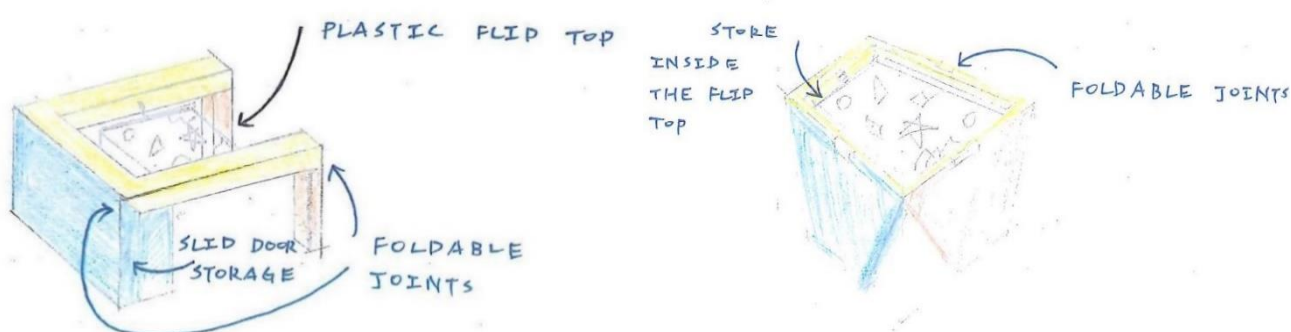 PLASTIC FLIP TOP
SLID DOOR
STORAGE
FOLDABLE
JOINTS
STORE
INSIDE
THE FLIP
TOP
FOLDABLE JOINTS